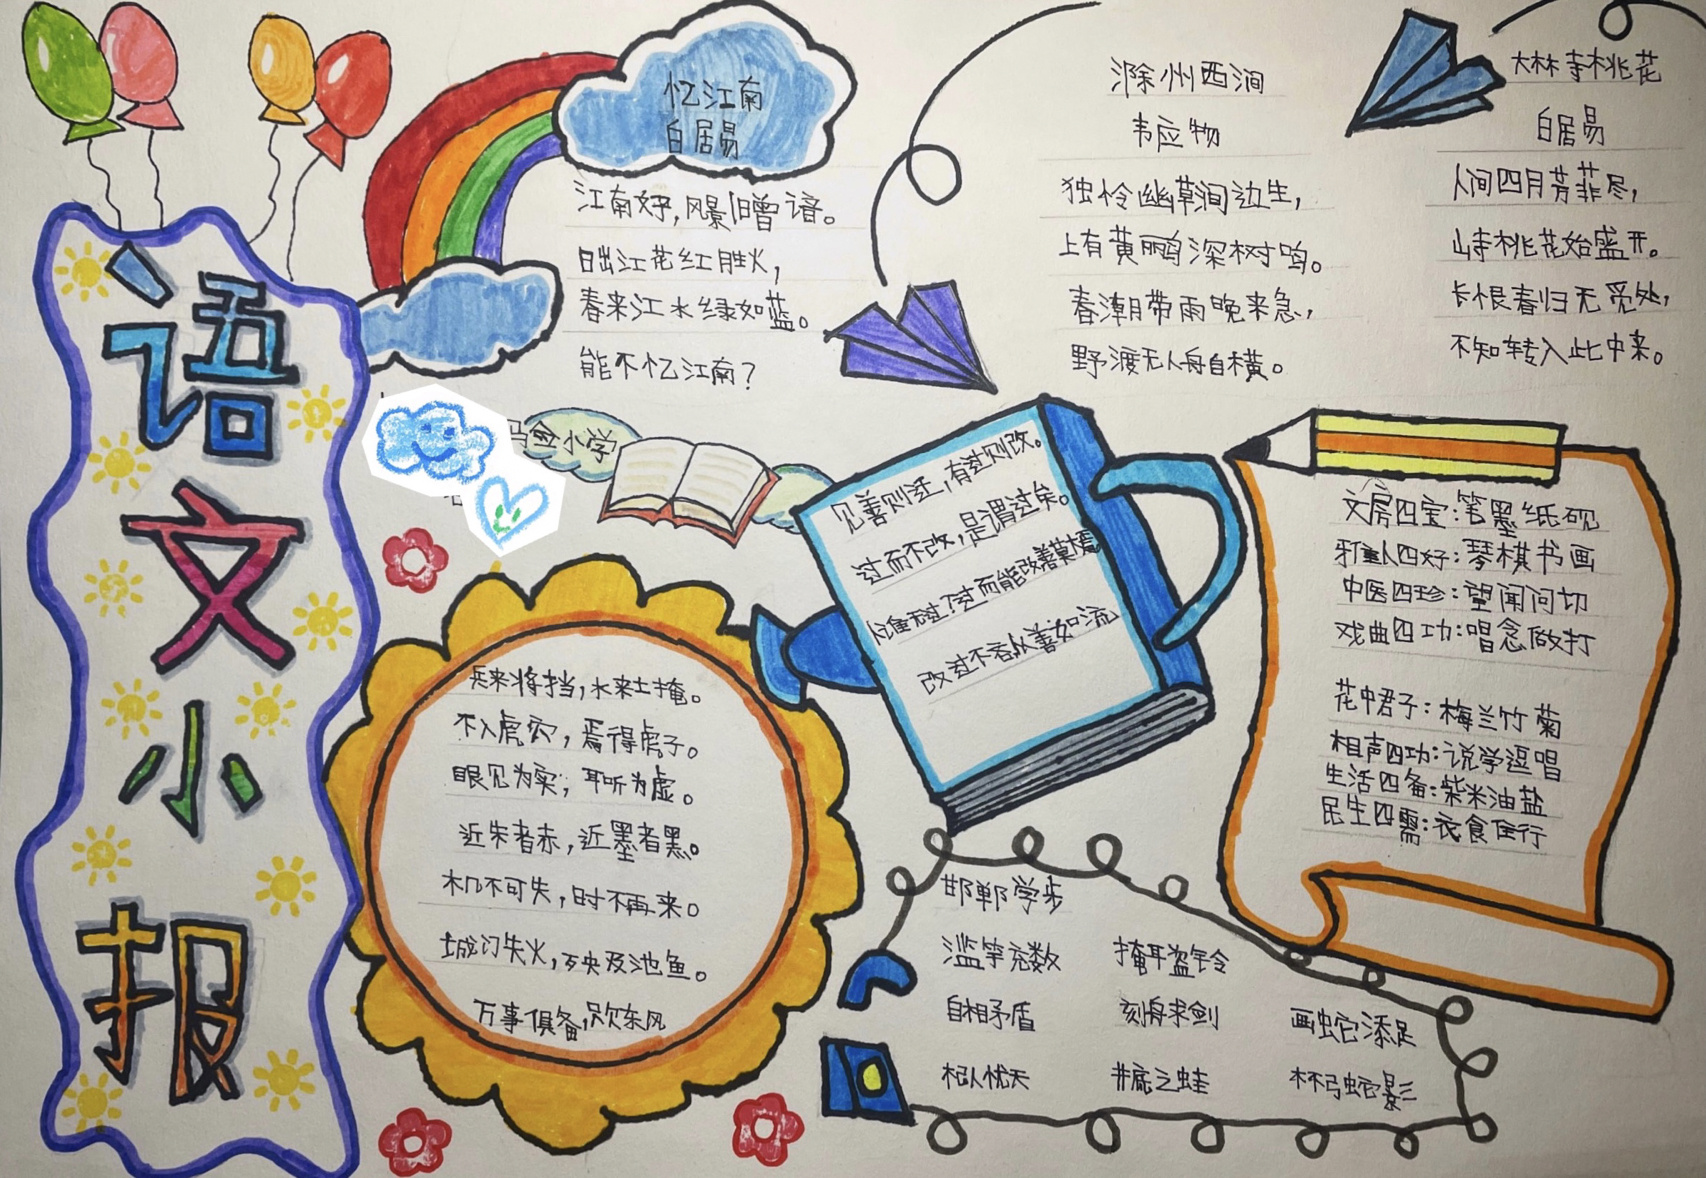 语文小报
忆江南
白居易
江南好，风景旧曾谙。
日出江花红胜火，
春来江水绿如蓝。
能不忆江南？
滁州西涧
韦应物
独怜幽草涧边生，
上有黄鹂深树鸣。
春潮带雨晚来急，
野渡无人舟自横。
大林寺桃花
白居易
人间四月芳菲尽，
山寺桃花始盛开。
长恨春归无觅处，
不知转入此中来。
小学
见善则迁，有过则改。
过而不改，是谓过矣。
人谁无过？过而能改善莫大焉
改过不吝从善如流
文房四宝：笔墨纸砚
雅人四好：琴棋书画
中医四珍：望闻问切
戏曲四功：唱念做打
花中君子：梅兰竹菊
相声四功：说学逗唱
生活四备：柴米油盐
民生四需：衣食住行
兵来将挡，水来土掩。
不入虎穴，焉得虎子。
眼见为实，耳听为虚。
近朱者赤，近墨者黑。
机不可失，时不再来。
城门失火，殃及池鱼。
万事俱备，只欠东风
邯郸学步
滥竽充数 掩耳盗铃
自相矛盾 刻舟求剑 画蛇添足
杞人忧天 井底之蛙 杯弓蛇影